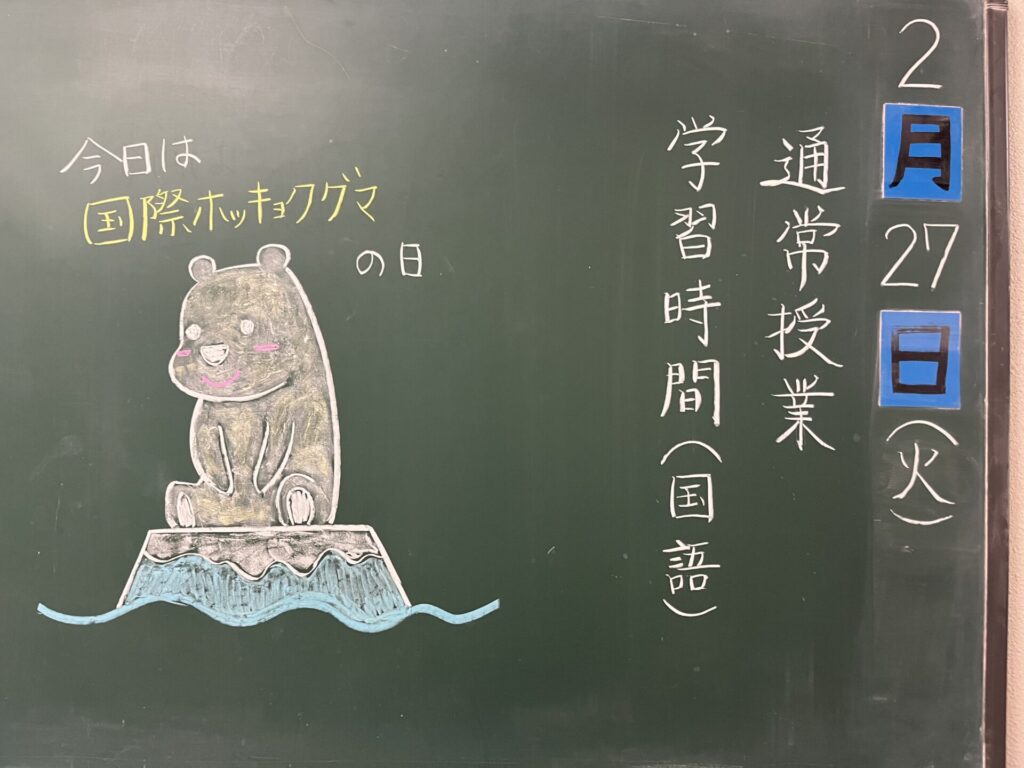 2月27日(火)
通常授業
学習時間(国語)
今日は
国際ホッキョクグマ
の日